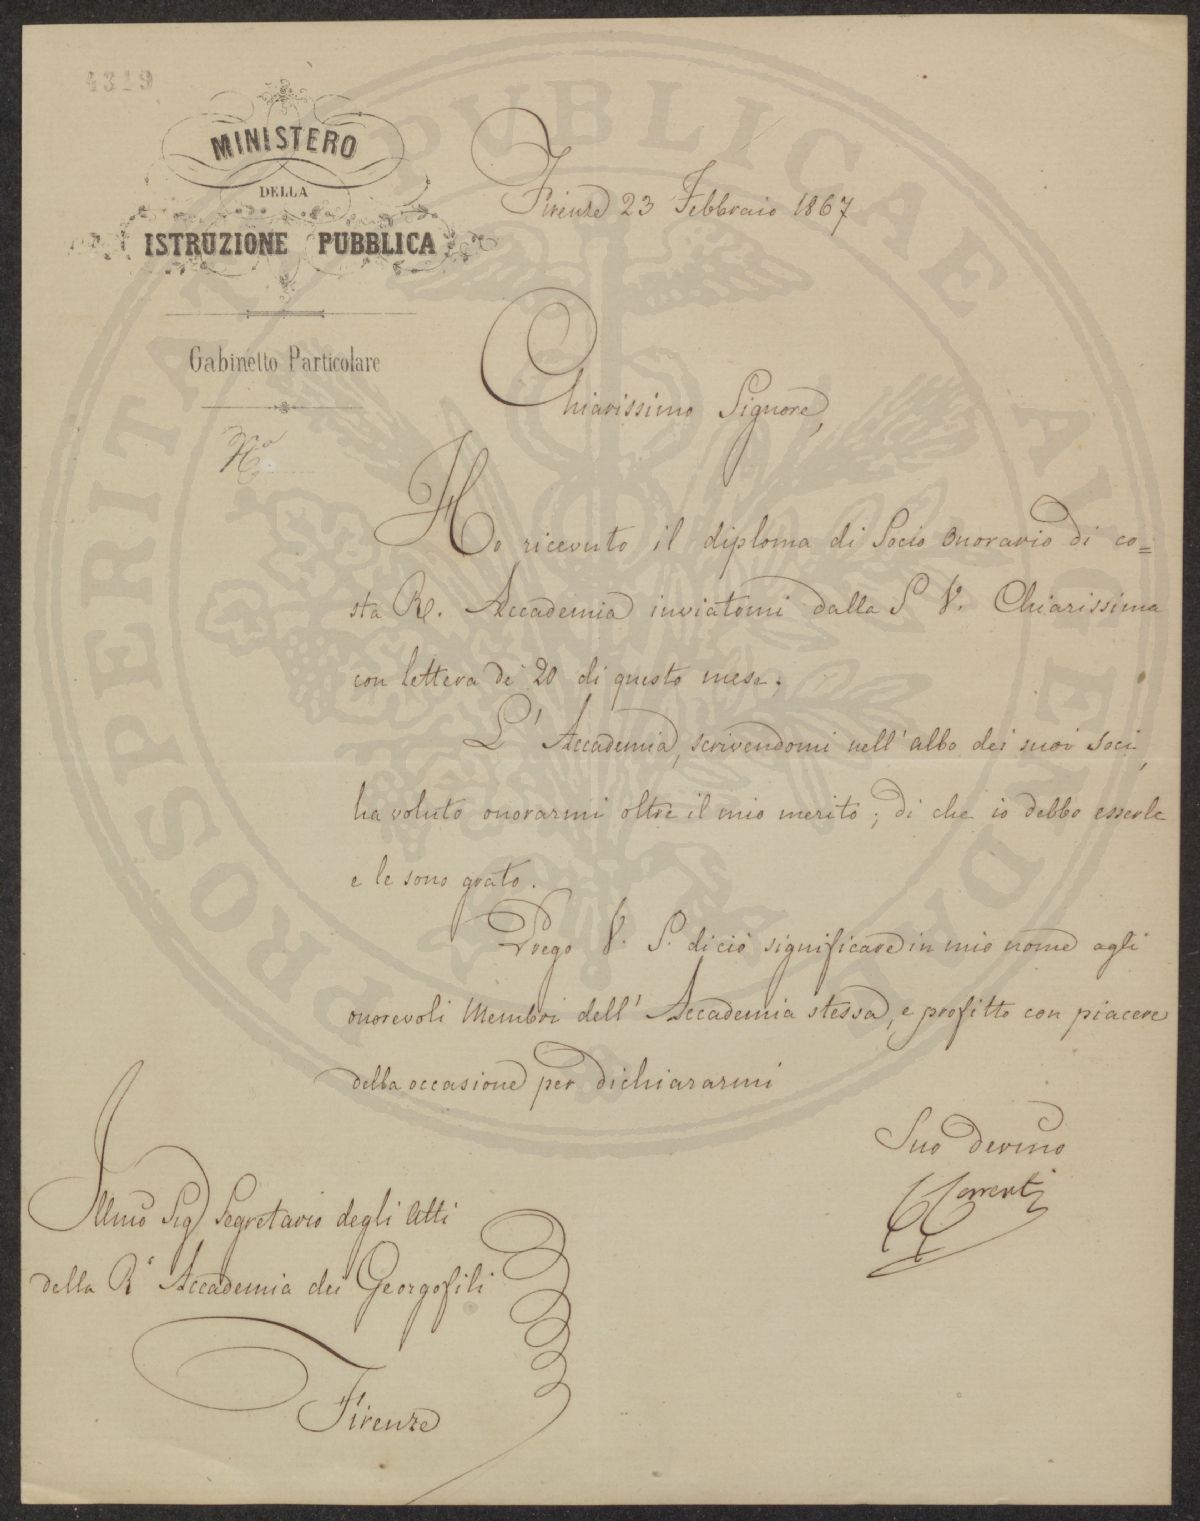 4319
MINISTERO
DELLA
ISTRUZIONE PUBBLICA
Gabinetto Particolare
N.o
Firenze 23 Febbraio 1867
Chiarissimo Signore,
Ho ricevuto il diploma di Socio Onorario di co=
sta R. Accademia inviatomi dalla S. V. Chiarissima
con lettera de' 20 di questo mese.
L' Accademia, scrivendomi nell' albo dei suoi Soci,
ha voluto onorarmi oltre il mio merito; di che io debbo esserle
e le sono grato.
Prego V. S. di ciò significare in mio nome agli
onorevoli Membri dell' Accademia stessa, e profitto con piacere
della occasione per dichiararmi
Suo devmo
CCorrenti
Illmo Sig Segretario degli Atti
della Ra Accademia dei Georgofili
Firenze
PROSPERITATI PUBLICAE AUGENDAE